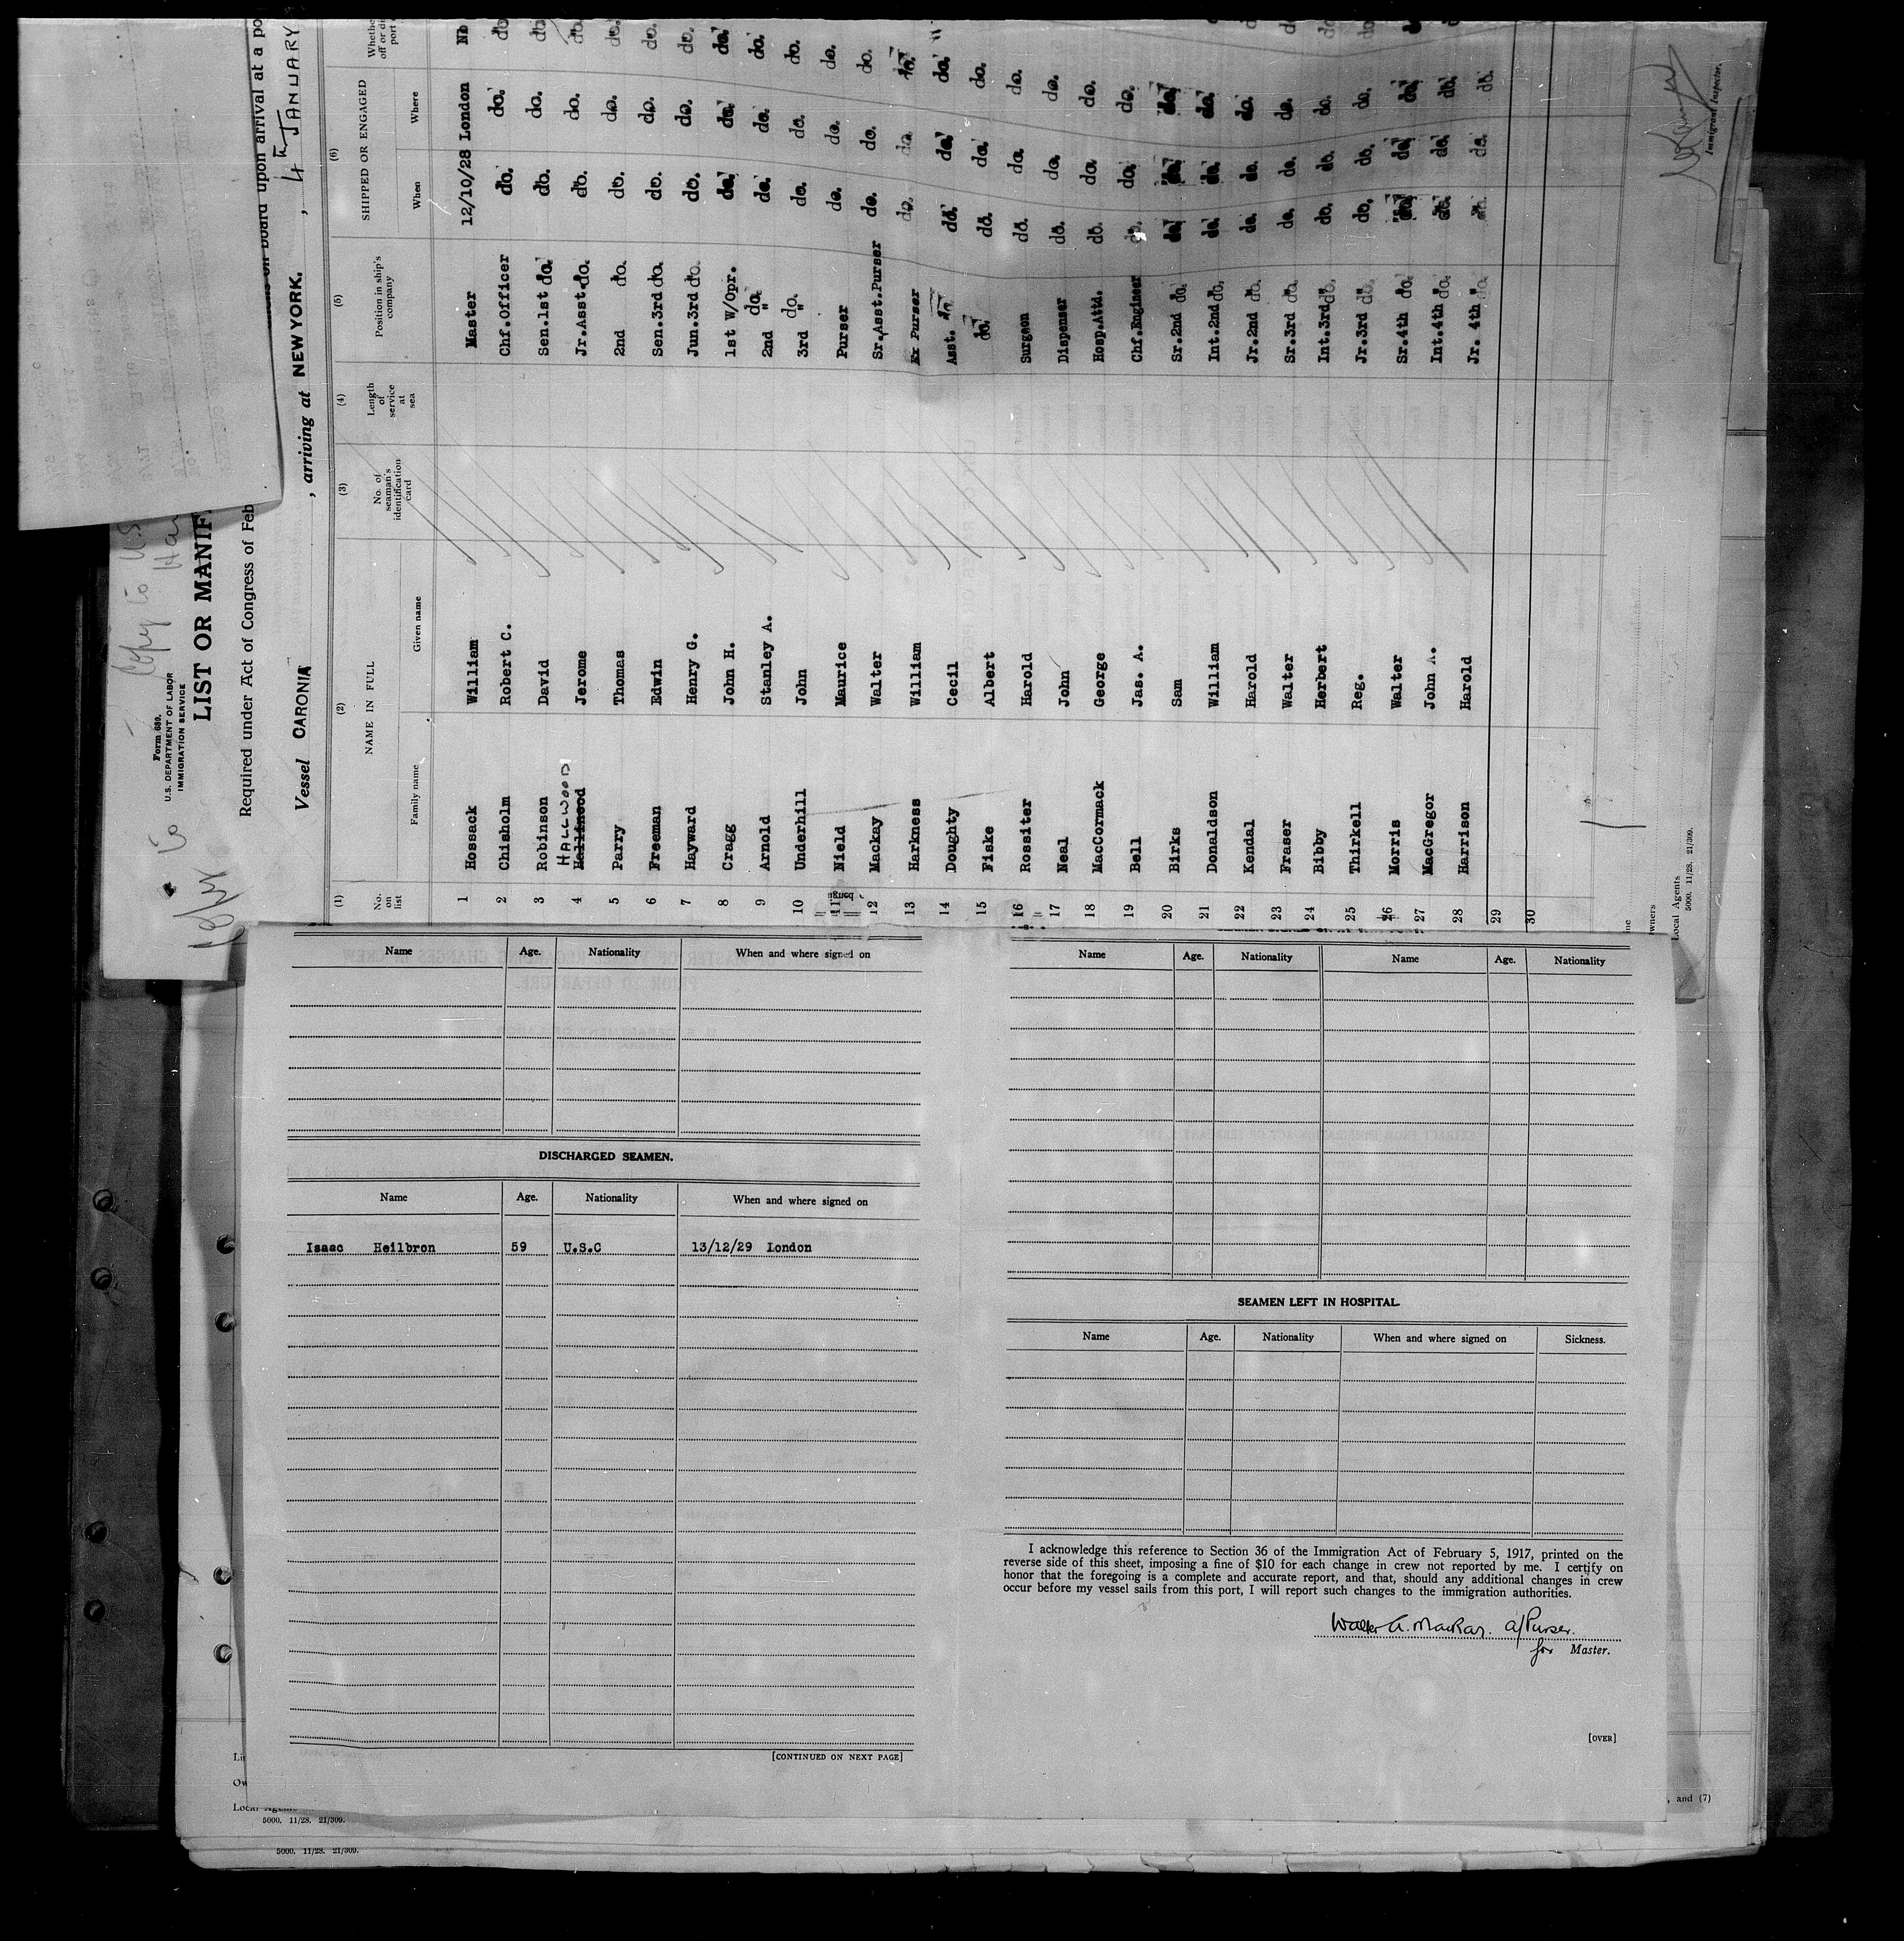 Form 689.
U.S. DEPARTMENT OF LABOR
IMMIGRATION SERVICE
Copy to U.S
LIST OR MANIF
Required under Act of Congress of Feb
on board upon arrival at a po
Vessel CARONIA , arriving at NEW YORK. , 4th JANUARY
(1) (2) (3) (4) (5) (6)
No. on list NAME IN FULL No. of seaman's identification card Length of service at sea Position in ship's company SHIPPED OR ENGAGED
Family name Given name When Where
1 Hossack William Master 12/10/28 London
2 Chisholm Robert C. Chf.Officer do. do. do.
3 Robinson David Sen.1st do. do. do. do.
4 HALLWOOD Jerome Jr.Asst.do. do. do. do.
5 Parry Thomas 2nd do. do. do. do.
6 Freeman Edwin Sen.3rd do. do. do. do.
7 Hayward Henry G. Jun.3rd do. do. do. do.
8 Cragg John H. 1st W/Opr. do. do. do.
9 Arnold Stanley A. 2nd " do. do. do. do.
10 Underhill John 3rd " do. do. do. do.
11 Nield Maurice Purser do. do. do.
12 Mackay Walter Sr.Asst.Purser do. do. do.
13 Harkness William Ex Purser do. do. do.
14 Doughty Cecil Asst. do. do. do. do.
15 Fiske Albert do. do. do. do.
16 Rossiter Harold Surgeon do. do. do.
17 Neal John Dispenser do. do. do.
18 MacCormack George Hosp.Attd. do. do. do.
19 Bell Jas. A. Chf.Engineer do. do. do.
20 Birks Sam Sr.2nd do. do. do. do.
21 Donaldson William Int.2nd do. do. do. do.
22 Kendal Harold Jr.2nd do. do. do. do.
23 Fraser Walter Sr.3rd do. do. do. do.
24 Bibby Herbert Int.3rd do. do. do. do.
25 Thirkell Reg. Jr.3rd do. do. do. do.
26 Morris Walter Sr.4th do. do. do. do.
27 MacGregor John A. Int.4th do. do. do. do.
28 Harrison Harold Jr. 4th do. do. do. do.
29
30
Immigrant Inspector.
Local Agents
5000. 11/28. 21/309.
Name Age. Nationality When and where signed on
DISCHARGED SEAMEN.
Name Age. Nationality When and where signed on
Isaac Heilbron 59 U.S.C 13/12/29 London
[CONTINUED ON NEXT PAGE]
Name Age. Nationality Name Age. Nationality
SEAMEN LEFT IN HOSPITAL.
Name Age. Nationality When and where signed on Sickness.
I acknowledge this reference to Section 36 of the Immigration Act of February 5, 1917, printed on the
reverse side of this sheet, imposing a fine of $10 for each change in crew not reported by me. I certify on
honor that the foregoing is a complete and accurate report, and that, should any additional changes in crew
occur before my vessel sails from this port, I will report such changes to the immigration authorities.
Walter A. Mackay. a/Purser.
for Master.
[OVER]
, and (7)
Local Agents
5000. 11/28. 21/309.
5000. 11/28. 21/309.